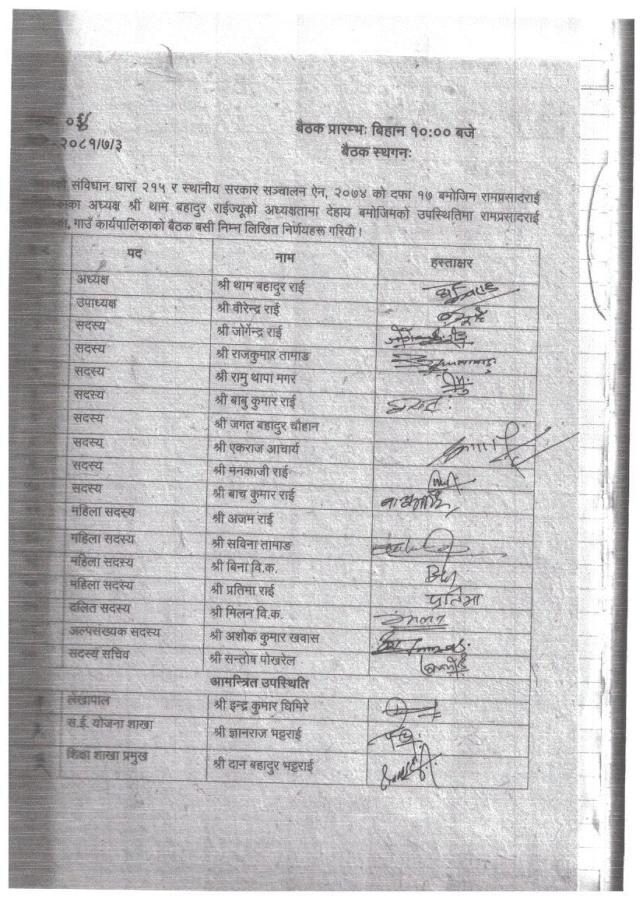 ०४
२०८१/७/३
बैठक प्रारम्भः बिहान १०:०० बजे
बैठक स्थगनः
संविधान धारा २१५ र स्थानीय सरकार सञ्चालन ऐन, २०७४ को दफा १७ बमोजिम रामप्रसादराई
अध्यक्ष श्री थाम बहादुर राईज्यूको अध्यक्षतामा देहाय बमोजिमको उपस्थितिमा रामप्रसादराई
गाउँ कार्यपालिकाको बैठक बसी निम्न लिखित निर्णयहरू गरियो ।
पद नाम हस्ताक्षर
अध्यक्ष श्री थाम बहादुर राई
उपाध्यक्ष श्री वीरेन्द्र राई
सदस्य श्री जोगेन्द्र राई
सदस्य श्री राजकुमार तामाङ
सदस्य श्री रामु थापा मगर
सदस्य श्री बाबु कुमार राई
सदस्य श्री जगत बहादुर चौहान
सदस्य श्री एकराज आचार्य
सदस्य श्री मनकाजी राई
सदस्य श्री बाच कुमार राई
महिला सदस्य श्री अजम राई
महिला सदस्य श्री सविना तामाङ
महिला सदस्य श्री बिना वि.क.
महिला सदस्य श्री प्रतिमा राई प्रतिमा
दलित सदस्य श्री मिलन वि.क.
अल्पसंख्यक सदस्य श्री अशोक कुमार खवास
सदस्य सचिव श्री सन्तोष पोखरेल
आमन्त्रित उपस्थिति
लेखापाल श्री इन्द्र कुमार घिमिरे
स.ई. योजना शाखा श्री ज्ञानराज भट्टराई
शिक्षा शाखा प्रमुख श्री दान बहादुर भट्टराई